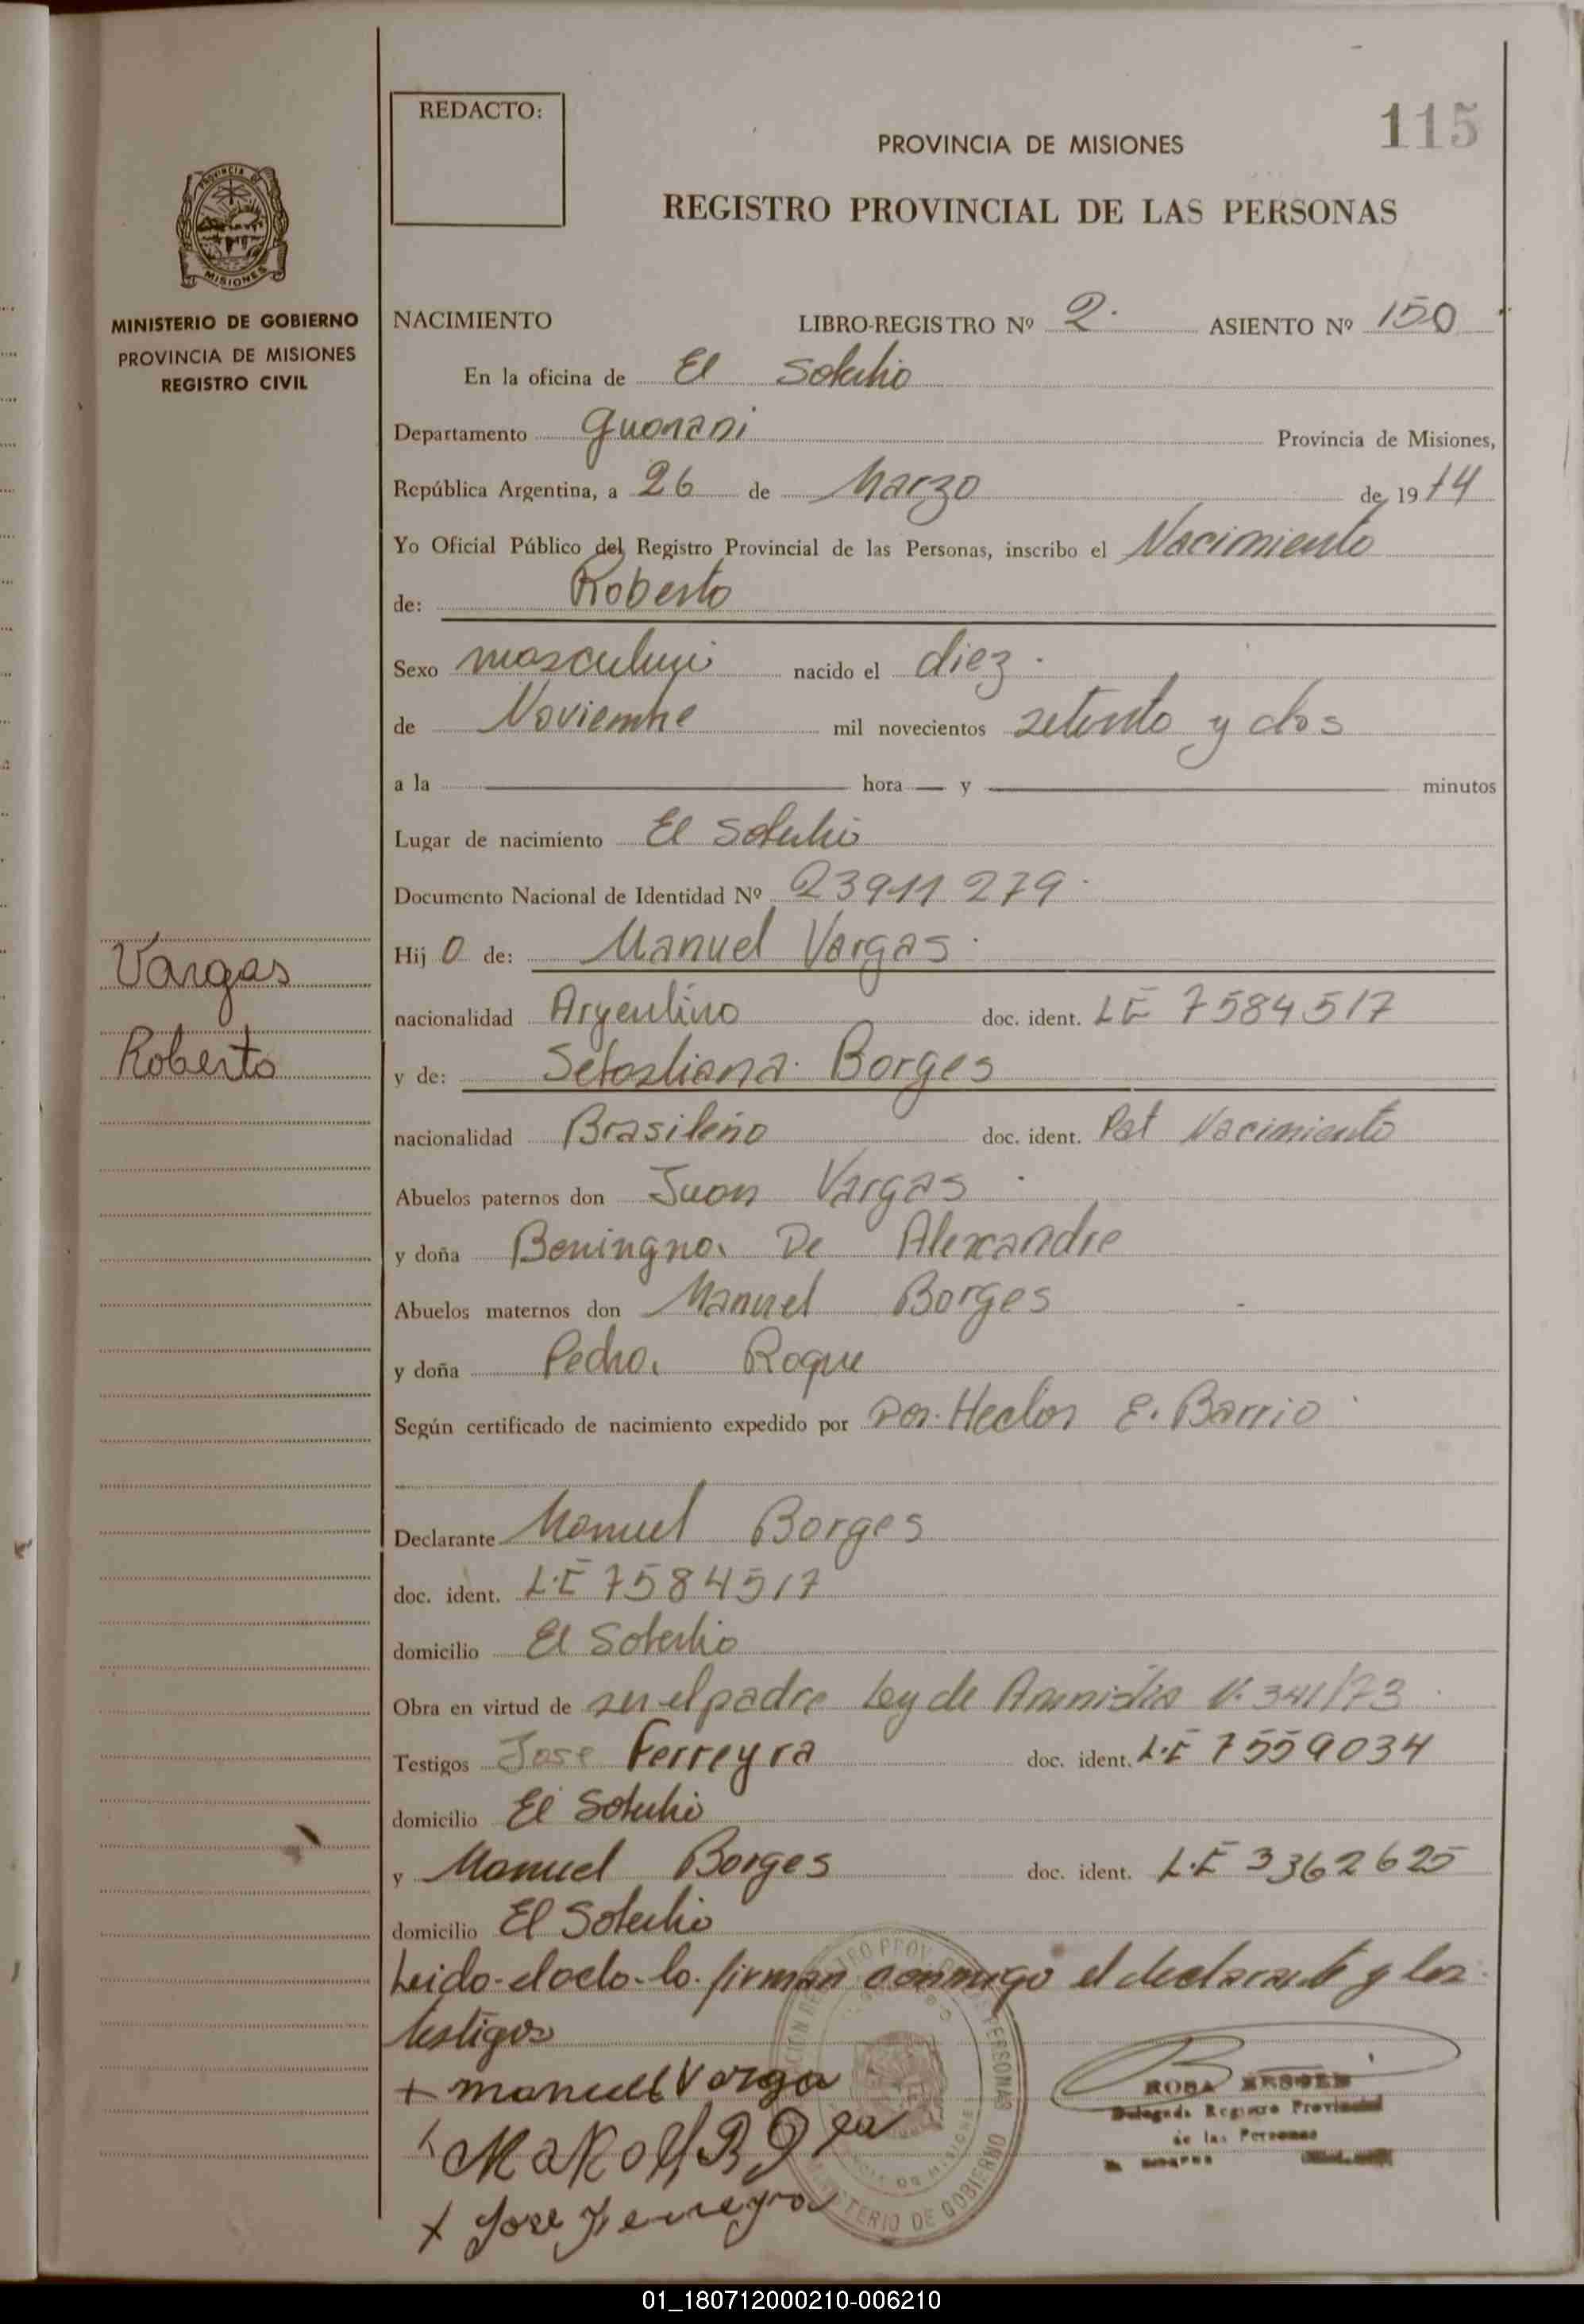 REDACTO:
115
PROVINCIA DE MISIONES
REGISTRO PROVINCIAL DE LAS PERSONAS
PROVINCIA DE
MISIONES
MINISTERIO DE GOBIERNO
PROVINCIA DE MISIONES
REGISTRO CIVIL
NACIMIENTO LIBRO-REGISTRO Nº 2. ASIENTO Nº 150
En la oficina de El Soberbio
Departamento Guarani Provincia de Misiones,
República Argentina, a 26 de Marzo de 1974
Yo Oficial Público del Registro Provincial de las Personas, inscribo el Nacimiento
de: Roberto
Sexo masculino nacido el diez.
de Noviembre mil novecientos setenta y dos
a la hora y minutos
Lugar de nacimiento El Soberbio
Documento Nacional de Identidad Nº 23911279.
Hij o de: Manuel Vargas.
Vargas
nacionalidad Argentino doc. ident. LE 7584517
Roberto
y de: Sebastiana Borges
nacionalidad Brasileño doc. ident. Pat Nacimiento
Abuelos paternos don Juan Vargas
y doña Beningna De Alexandre
Abuelos maternos don Manuel Borges
y doña Pedra Roque
Según certificado de nacimiento expedido por Dor. Hector E. Barrio
Declarante Manuel Borges
doc. ident. L.E 7584517
domicilio El Soberbio
Obra en virtud de ser el padre Ley de Amnistia N. 341/73
Testigos Jose Ferreyra doc. ident. L.E 7559034
domicilio El Soberbio
y Manuel Borges doc. ident. L.E 3362625
domicilio El Soberbio
Leido el acta lo firman conmigo el declarante y los
testigos
+ manuel Varga
+ Jose Ferreyra
ROSA
Delegada Registro Provincial
de las Personas
MINISTERIO DE GOBIERNO
01_180712000210-006210